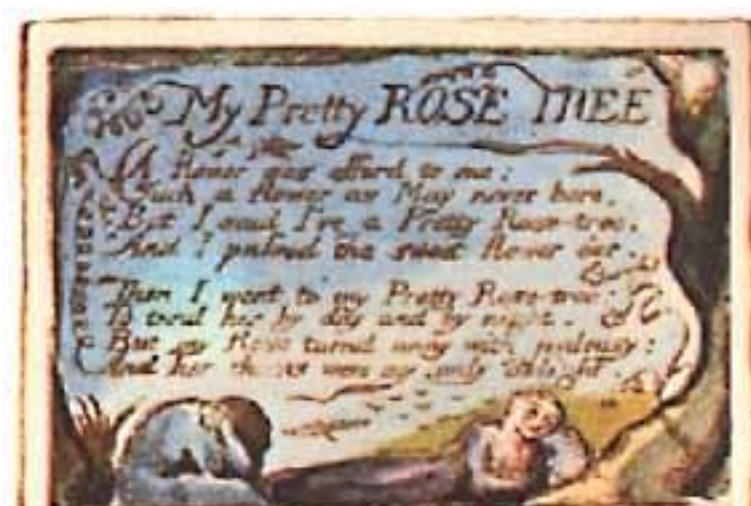 My Pretty ROSE TREE
A flower was offerd to me:
Such a flower as May never bore.
But I said I've a Pretty Rose-tree,
And I passed the sweet flower o'er.
Then I went to my Pretty Rose-tree:
To tend her by day and by night.
But my Rose turnd away with jealousy:
And her thorns were my only delight.